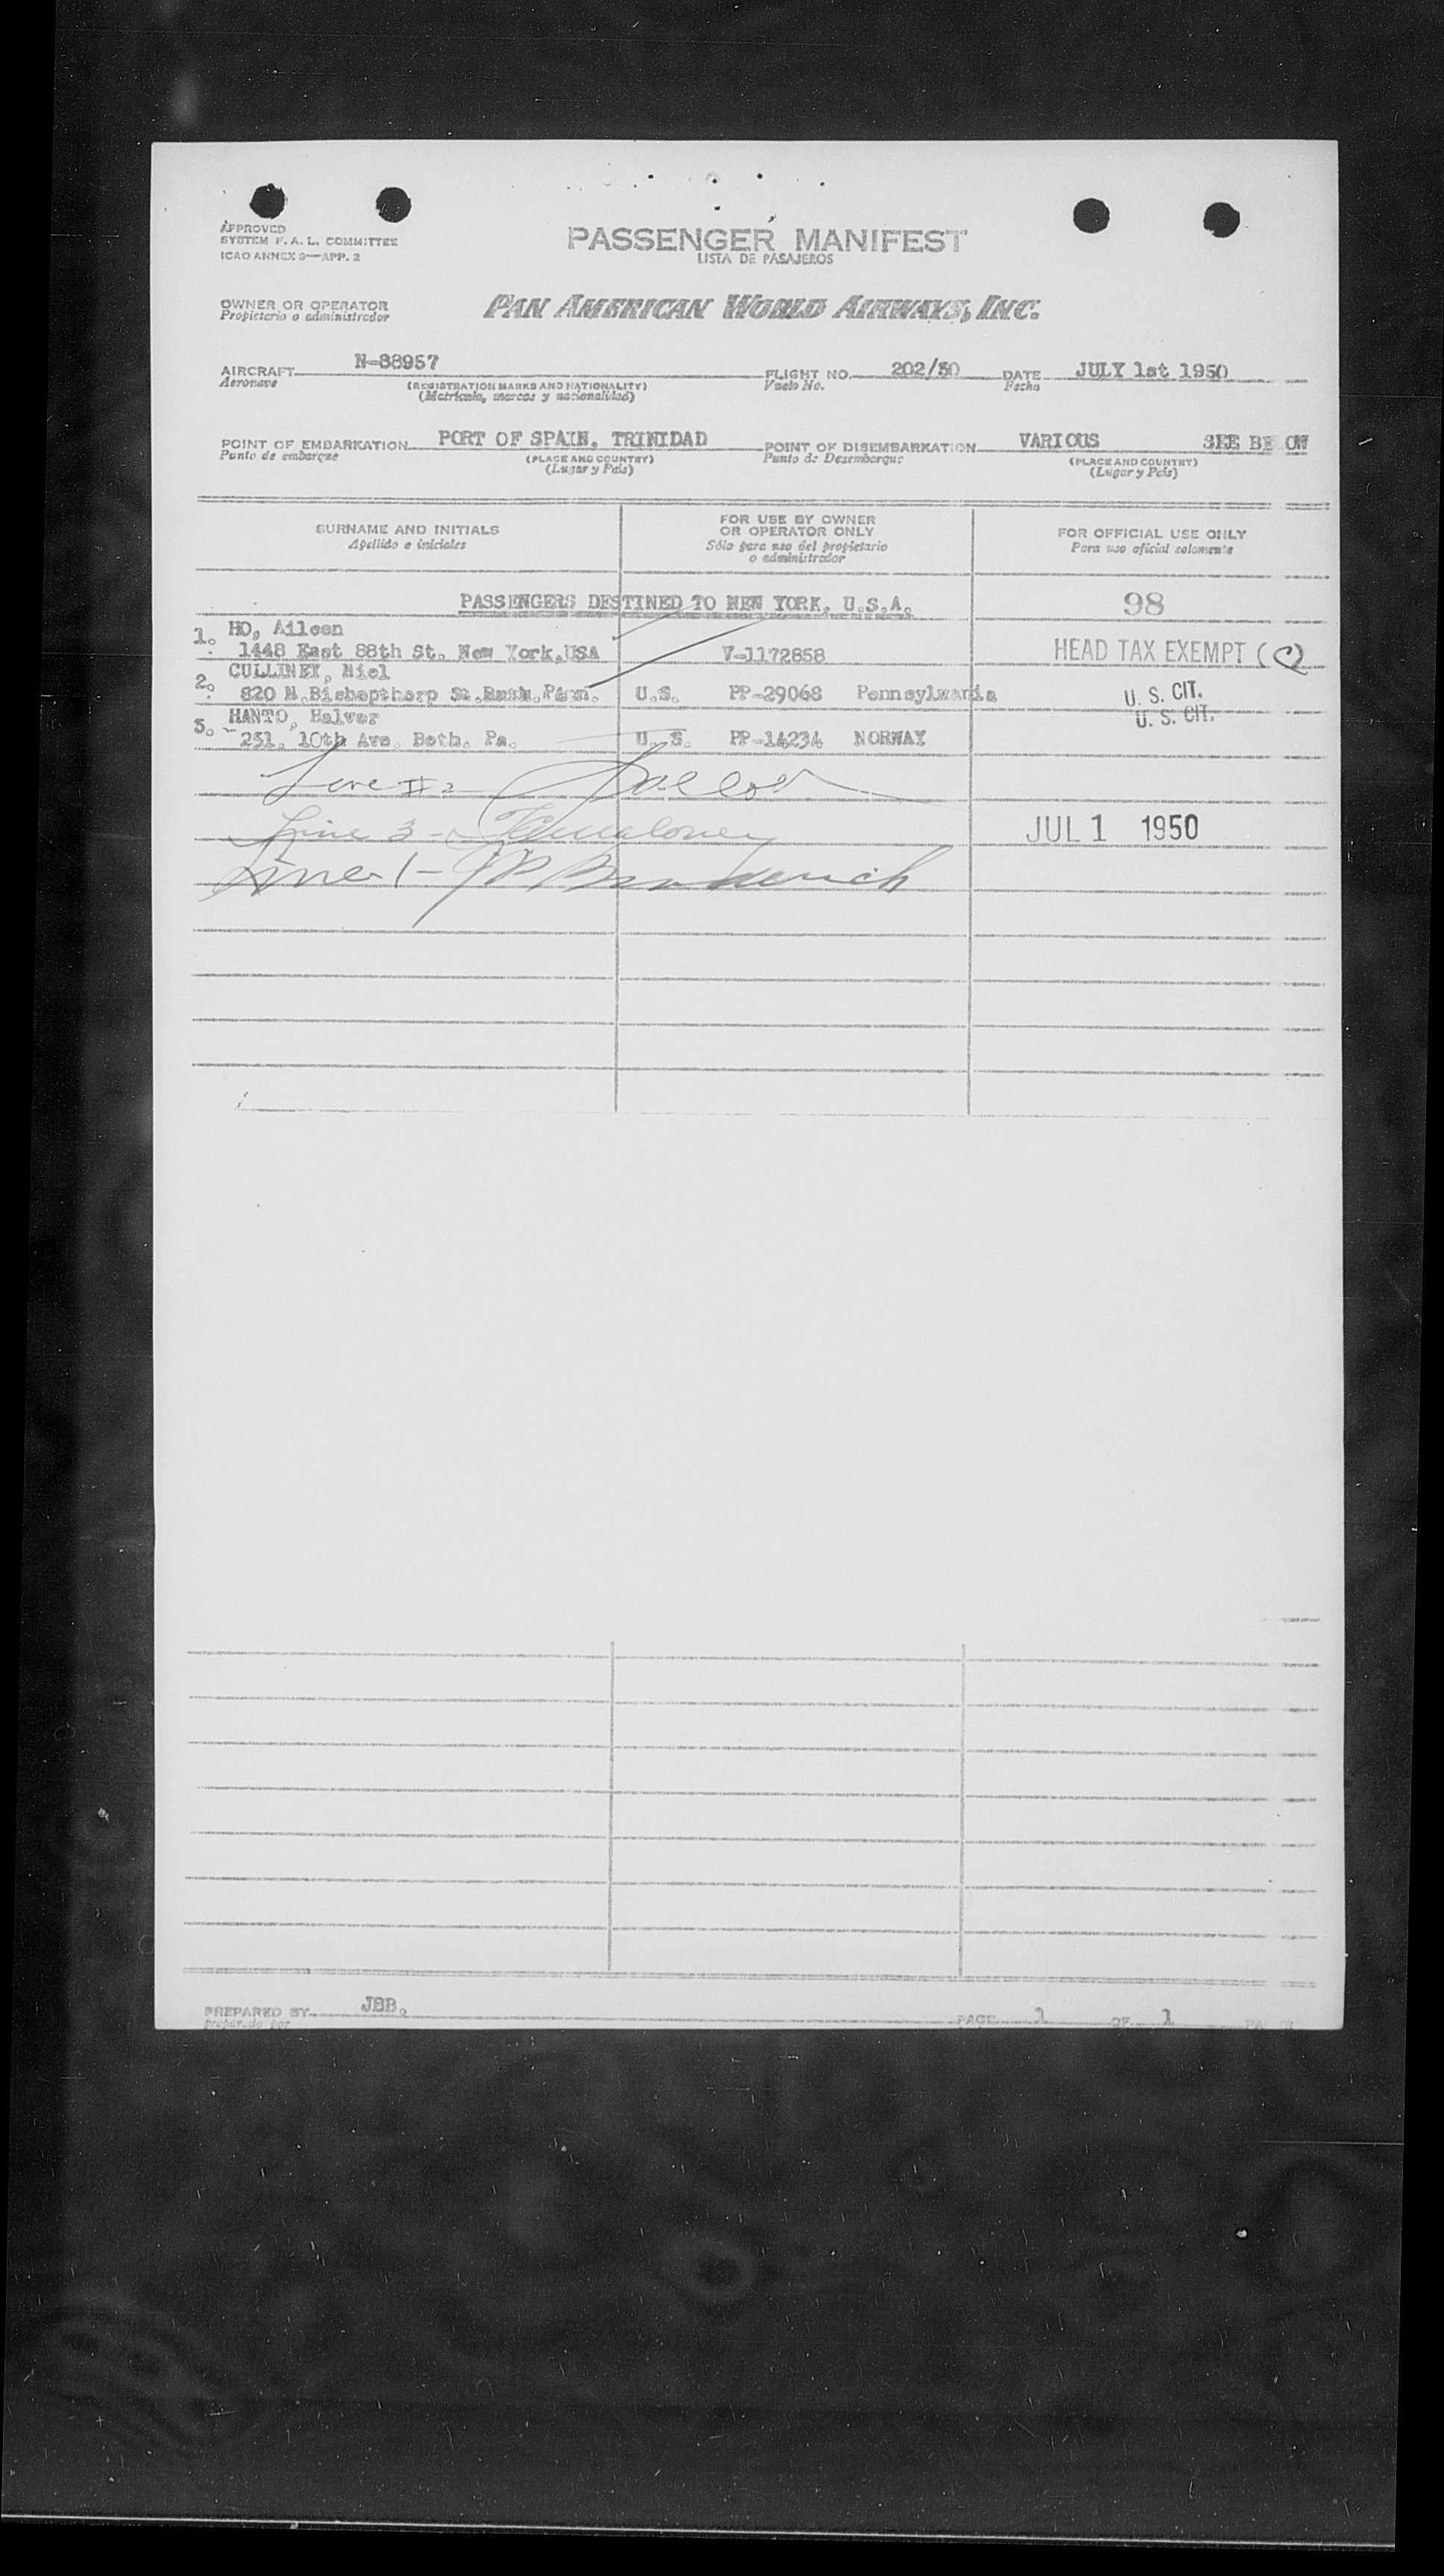 APPROVED
SYSTEM F. A. L. COMMITTEE
ICAO ANNEX 9—APP. 2
PASSENGER MANIFEST
LISTA DE PASAJEROS
OWNER OR OPERATOR
Propietario o administrador
PAN AMERICAN WORLD AIRWAYS, INC.
AIRCRAFT N-88957 FLIGHT NO. 202/30 DATE JULY 1st 1950
Aeronave (REGISTRATION MARKS AND NATIONALITY) Vuelo No. Fecha
(Matrícula, marcas y nacionalidad)
POINT OF EMBARKATION PORT OF SPAIN, TRINIDAD POINT OF DISEMBARKATION VARIOUS SEE BELOW
Punto de embarque (PLACE AND COUNTRY) Punto de Desembarque (PLACE AND COUNTRY)
(Lugar y País) (Lugar y País)
SURNAME AND INITIALS FOR USE BY OWNER OR OPERATOR ONLY FOR OFFICIAL USE ONLY
Apellido e iniciales Sólo para uso del propietario o administrador Para uso oficial solamente
PASSENGERS DESTINED TO NEW YORK, U.S.A. 98
1. HO, Aileen
1448 East 88th St. New York,USA V-1172858 HEAD TAX EXEMPT (C)
2. CULLINEY, Niel
820 N.Bishopthorp St. Penn. U.S. PP-29068 Pennsylvania U. S. CIT.
3. HANTO, Halver U. S. CIT.
251. 10th Ave. Beth. Pa. U. S. PP-14234 NORWAY
Line #2
Line 3 - Maloney JUL 1 1950
Line 1 - JP
PREPARED BY JBB. PAGE 1 OF 1
Preparado por